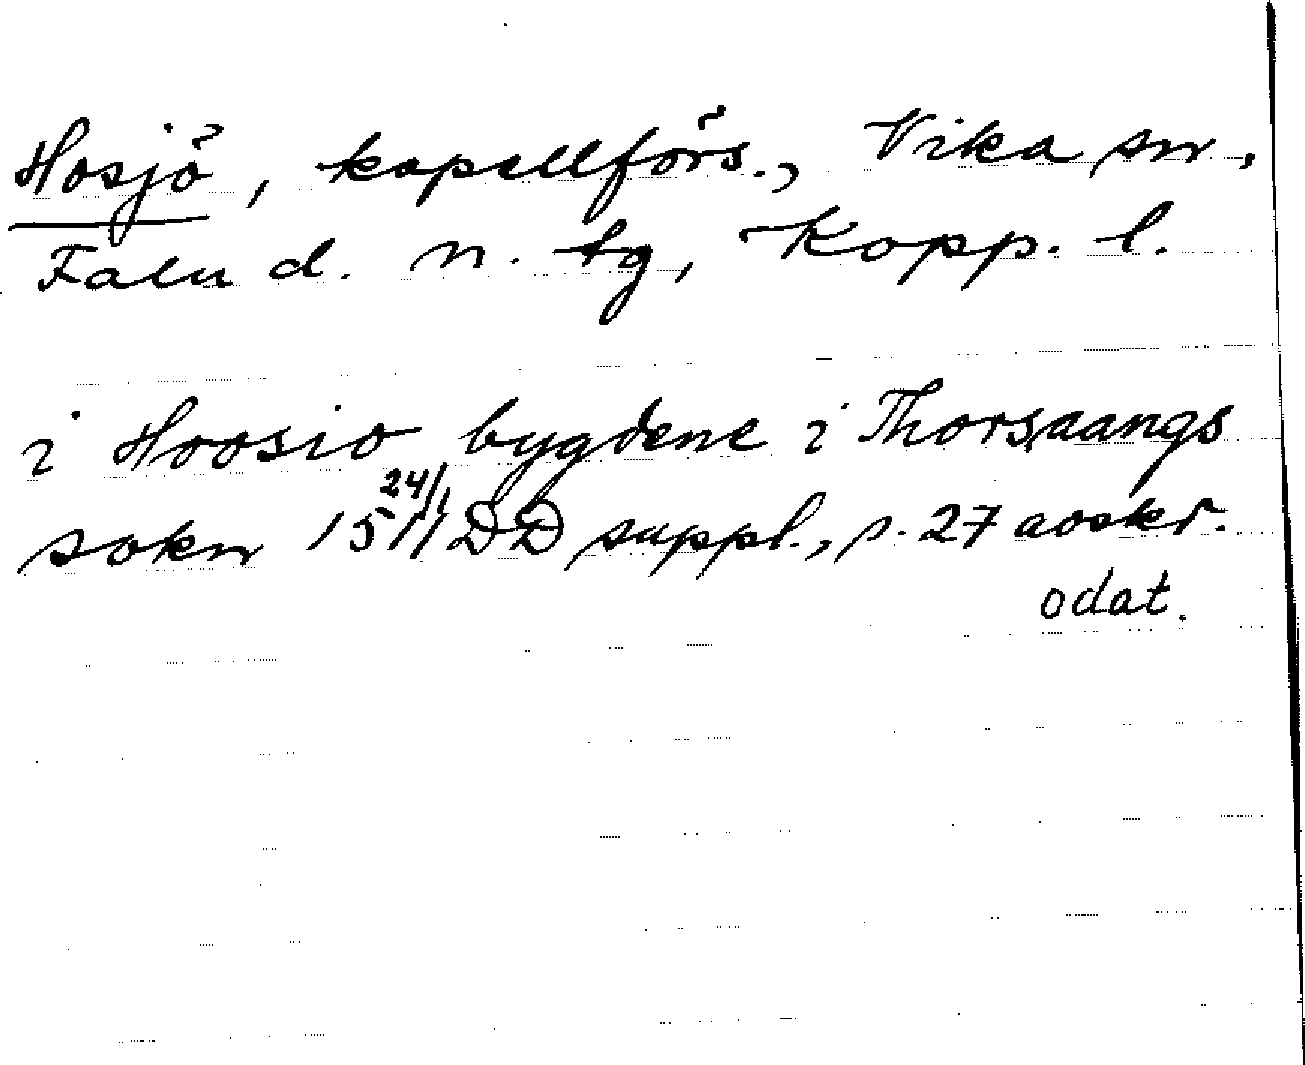 Hosjö, kapellförs., Vika sn,
Falu d. n. tg, Kopp. l.
i Hoosio bygdene i Thorsaangs
sokn 1511 24/1 DD suppl., s. 27 avskr.
odat.